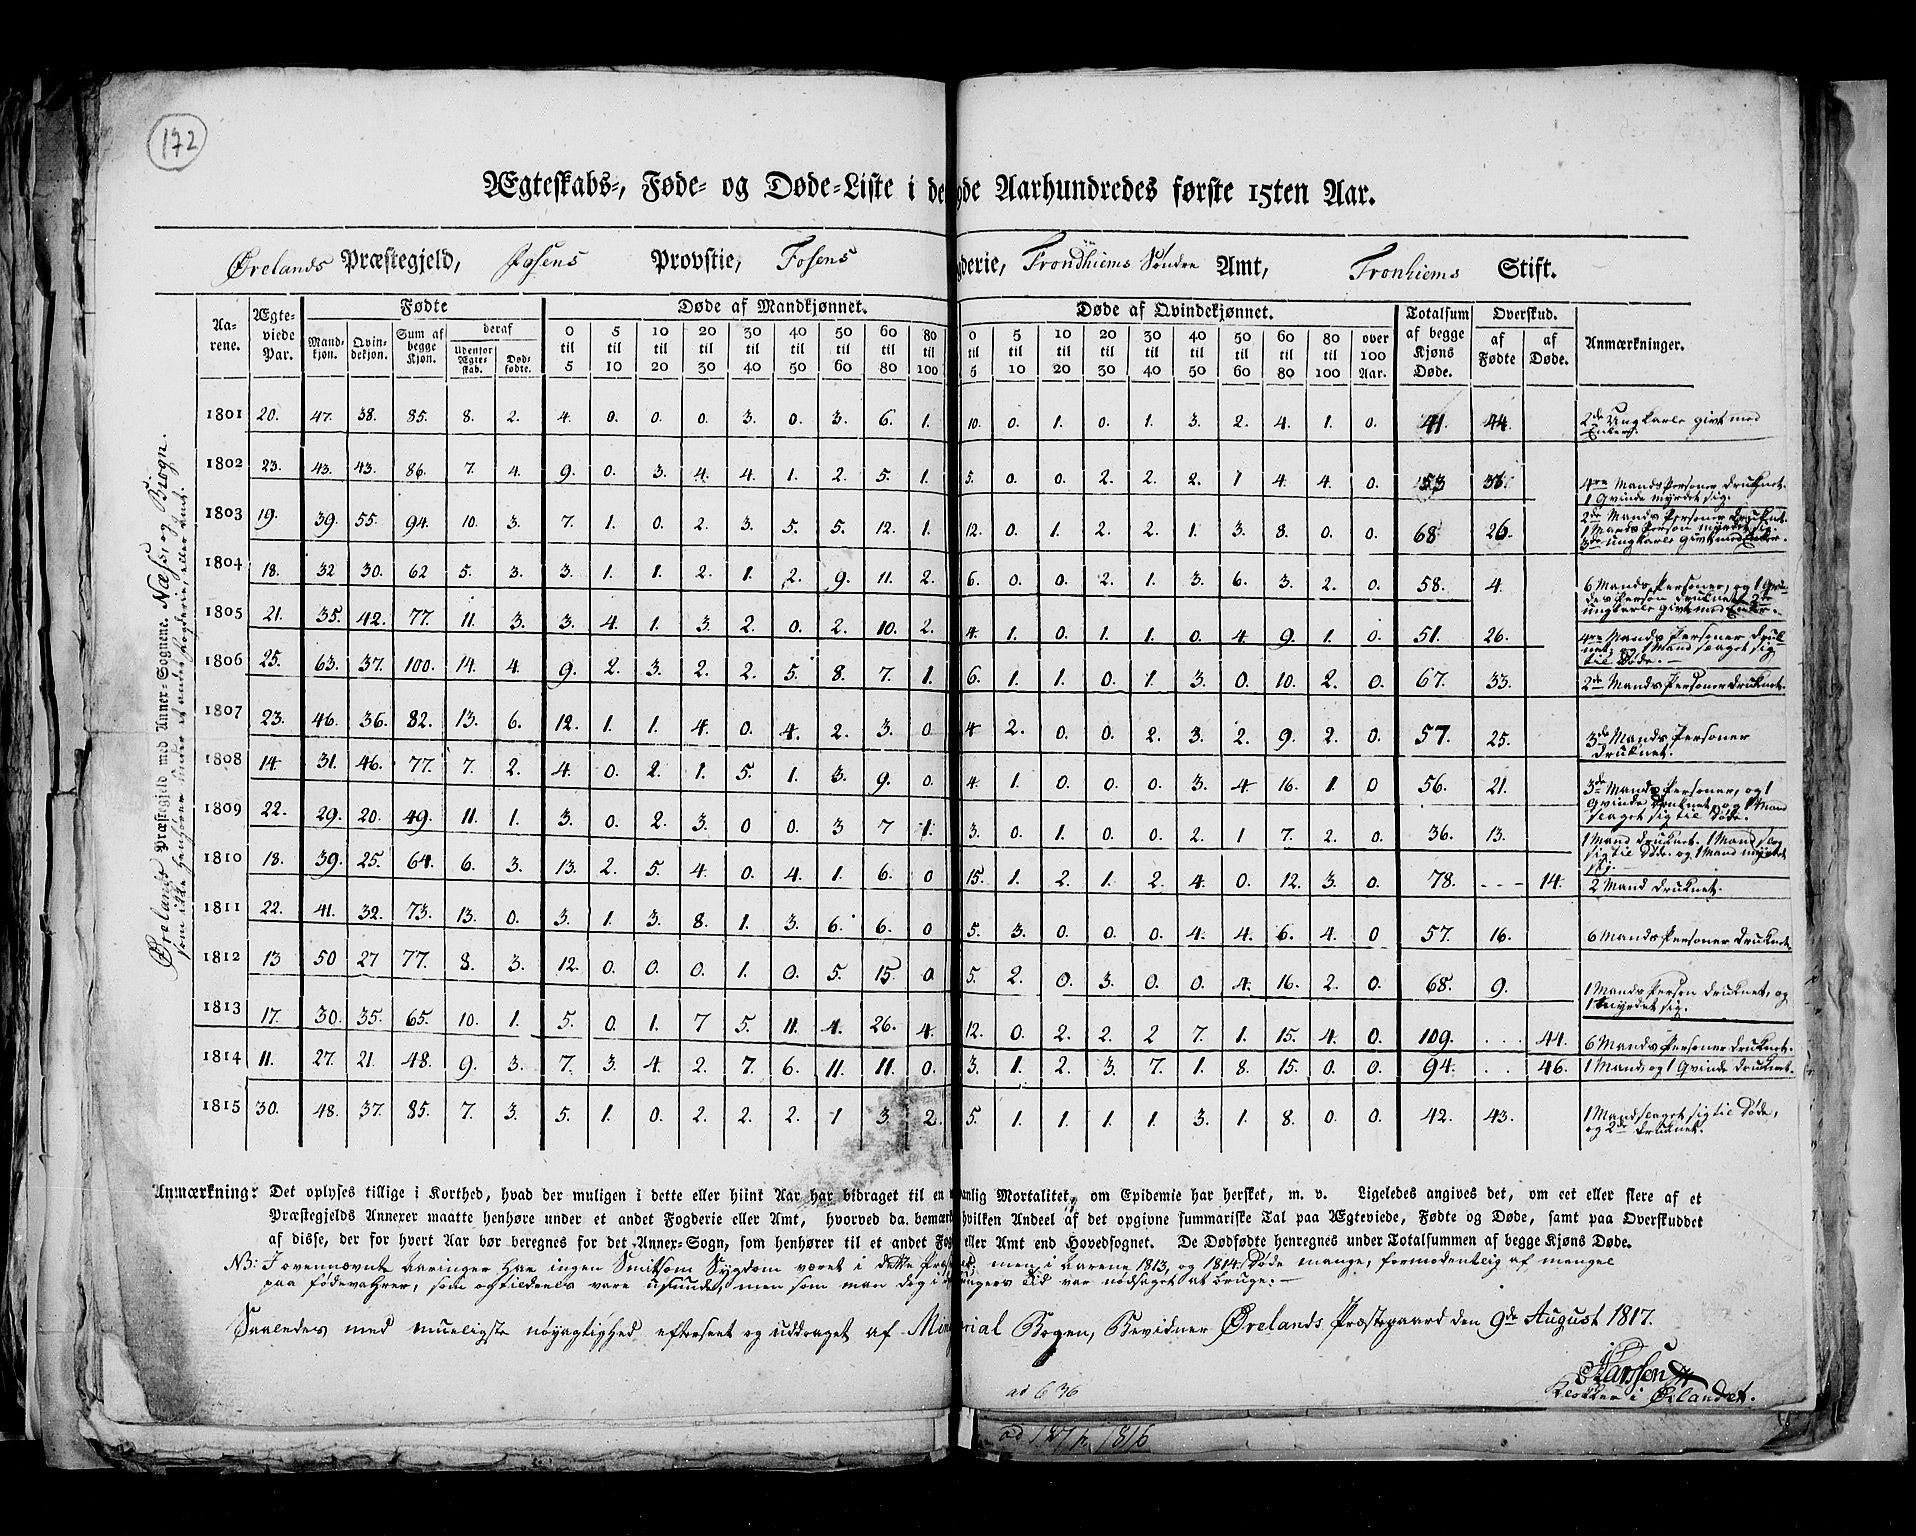 172
Ægteskabs-, Føde- og Døde-Liste i de gde Aarhundredes første 15ten Aar.
Ørelands Præstegjeld, Fosens Provstie, Fosens gderie, Trondhiems Søndre Amt, Tronhiems Stift.
Ørelands Præstegjeld med Anner-Sognene. Næss, og Biogn.
som ikke henhører under et andet Fogderie, eller Amt.
Aa-rene. Ægte-viede Par. Fødte Døde af Mandkjønnet. Døde af Qvindekjønnet. Totalsum af begge Kjøns Døde. Overskud. Anmærkninger.
Mand-kjøn. Qvin-dekjøn. Sum af begge Kjøn. deraf Udenfor Ægte-skab. Død-fødte. 0 til 5 5 til 10 10 til 20 20 til 30 30 til 40 40 til 50 50 til 60 60 til 80 80 til 100 0 til 5 5 til 10 10 til 20 20 til 30 30 til 40 40 til 50 50 til 60 60 til 80 80 til 100 over 100 Aar. af Fødte af Døde.
1801 20. 47. 38. 85. 8. 2. 4. 0. 0. 0. 3. 0. 3. 6. 1. 10. 0. 1. 0. 1. 3. 2. 4. 1. 0. 41. 44. 2de Ungkarle givt med Enker.
1802 23. 43. 43. 86. 7. 4. 9. 0. 3. 4. 4. 1. 2. 5. 1. 5. 0. 0. 2. 2. 2. 1 4. 4. 0. 53 4re Mands Personer druknet. 1 Qvinde myrdet sig.
1803 19. 39. 55. 94. 10. 3. 7. 1. 0. 2. 3. 5. 5. 12. 1. 12. 0. 1. 2. 2. 1. 3. 8. 0. 0. 68 26. 2de Mands Personer druknet. 1 Mands Person myrdet sig. 3de Ungkarle givt med Enker.
1804 18. 32 30. 62 5. 3. 3. 1. 1. 2. 1. 2. 9. 11. 2. 6. 0. 0. 2. 1. 3. 6. 3. 2. 0. 58. 4. 6 Mands Personer, og 1 Qvindes Person druknet, 2de Ungkarle givt med Enker.
1805 21. 35. 42. 77. 11. 3. 3. 4. 1. 3. 2. 0. 2. 10. 2. 4. 1. 0. 1. 1. 0. 4. 9. 1. 0. 51. 26. 4re Mands Personer druknet, og 1 Mand slaget sig til Døde.
1806 25. 63. 37. 100. 14. 4. 9. 2. 3. 2. 2. 5. 8. 7. 1. 6. 1. 1. 0. 1. 3. 0. 10. 2. 0. 67. 33. 2de Mands Personer druknet.
1807 23. 46. 36. 82. 13. 6. 12. 1. 1. 4. 0. 4. 2. 3. 0 4 2. 0. 0. 2. 3. 2. 9. 2. 0. 57. 25. 3de Mands Personer druknet.
1808 14. 31. 46. 77. 7. 2. 4. 0. 2. 1. 5. 1. 3. 9. 0. 4. 1. 0. 0. 0. 3. 4 16. 1. 0 56. 21. 3de Mands Personer, og 1 Qvinde druknet, og 1 Mand slaget sig til Døde.
1809 22. 29. 20. 49. 11. 1. 3. 0. 2. 3. 0 0. 3 7 1. 3. 0. 1. 0. 0. 2. 1 7. 2. 0. 36. 13. 1 Mand druknet. 1 Mand slog sig til Døde. og 1 Mand myrdet sig.
1810 18. 39. 25. 64. 6. 3. 13. 2. 5. 4. 0. 4. 1. 6. 0 15. 1. 2. 1. 2. 4. 0. 12. 3. 0. 78. - - - 14. 2 Mand druknet.
1811 22. 41. 32. 73. 13. 0. 3. 1. 3. 8. 1. 3. 6. 6. 0 5. 3. 0. 0. 0. 4. 4. 6. 4. 0 57. 16. 6 Mands Personer druknet.
1812 13 50 27 77. 8. 3. 12. 0. 0. 0. 1. 0. 5. 15. 0. 5. 2. 0. 3. 0. 0. 4. 16. 2. 0. 68. 9. 1 Mands Person druknet, og 1 myrdet sig.
1813 17. 30. 35. 65. 10. 1. 5. 0. 1. 7 5. 11. 4. 26. 4. 12. 0. 2. 2. 2 7. 1. 15. 4. 0. 109. . . . 44. 6 Mands Personer druknet.
1814 11. 27. 21. 48. 9. 3. 7. 3. 4. 2. 7. 6. 11. 11. 0. 3. 1. 2. 3. 7. 1. 8. 15. 0. 0. 94. . . 46. 1 Mand, og 1 Qvinde druknet.
1815 30. 48. 37. 85. 7. 3. 5. 1. 0. 2. 2. 2. 1 3. 2. 5. 1. 1. 1. 1. 3. 1. 8. 0. 0. 42. 43. 1 Mand slaget sig til Døde, og 2de druknet.
Anmærkning: Det oplyses tillige i Korthed, hvad der muligen i dette eller hiint Aar har bidraget til en anlig Mortalitet, om Epidemie har hersket, m. v. Ligeledes angives det, om eet eller flere af et
Præstegjelds Annexer maatte henhøre under et andet Fogderie eller Amt, hvorved da bemær hvilken Andeel af det opgivne summariske Tal paa Ægteviede, Fødte og Døde, samt paa Overskuddet
af disse, der for hvert Aar bør beregnes for det Anner-Sogn, som henhører til et andet Fog eller Amt end Hovedsognet. De Dødfødte henregnes under Totalsummen af begge Kjøns Døde.
NB: I ovennævnte Aaringer har ingen Smitsom Sygdom været i dette Præ men i Aarene 1813, og 1814. Døde mange, formodentlig af mangel
paa fødevahrer, som og tildeels vare usunde, men som man dog i Tid var nødsaget at bruge. —
Saaledes med mueligste nøyagtighed efterseet og uddraget af Min rial Bogen, Bevidner Ørelands Præstegaard den 9de August 1817.
Klokker i Ørlandet.
ad 636